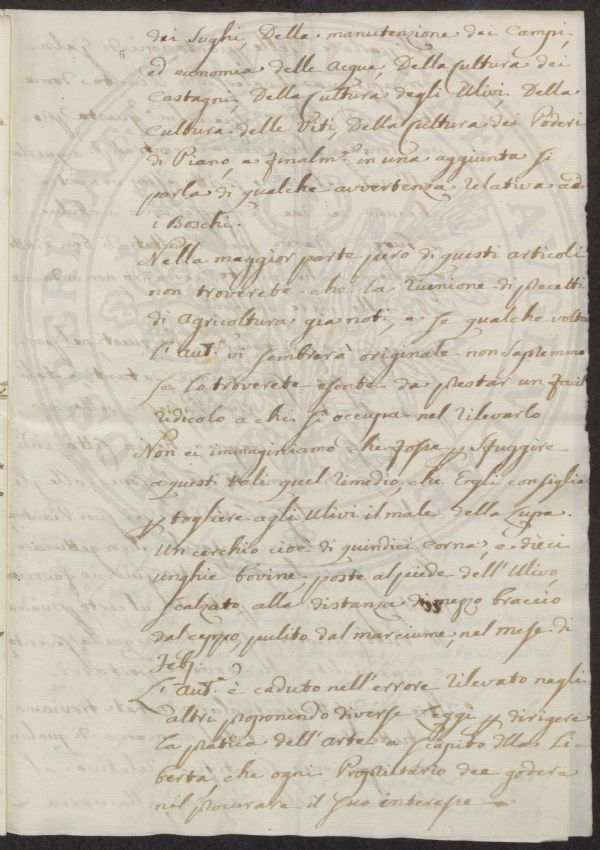 6
dei Sughi, Della manutenzione dei Campi,
ed economia delle Acque, Della Cultura dei
Castagni, Della Cultura degli Ulivi, Della
Cultura delle Viti, Della Cultura dei Poderi
di Piano, e finalm.e in una aggiunta si
parla di qualche avvertenza relativa ad
i Boschi.
Nella maggior parte però di questi articoli
non troverete che la riunione di precetti
di Agricoltura già noti, e se qualche volta
L'Aut.e vi sembrerà originale non sapremmo
se lo troverete esente da prestar un fail
ridicolo a chi si occupa nel rilevarlo
Non ci immaginiamo che fosse p sfuggire
a questi tali quel rimedio, che Egli consiglia
p togliere agli Ulivi il male della Lupa.
Un cerchio cioè di quindici corna, e dieci
unghie bovine, poste al piede dell'Ulivo,
scalzato, alla distanza di mezzo braccio
dal ceppo, pulito dal marciume, nel mese di
Febj.
L'Aut.e è caduto nell'errore rilevato negli
altri proponendo diverse Leggi p dirigere
la pratica dell'arte a scapito dlla Li-
bertà, che ogni Proprietario dee godere
nel procurare il suo interesse